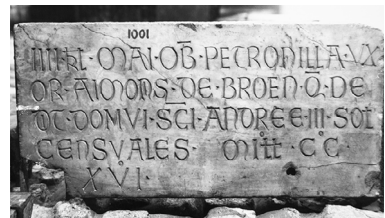 1001
IIII·KL·MAI·OB·PETRONILLA·VX
OR·AIMONS·DE·BROEN·Q·DE
DIT·DOMVI·SCI·ANDREE·III·SOL
CENSVALES· MILL· C̊C̊·
XVI·